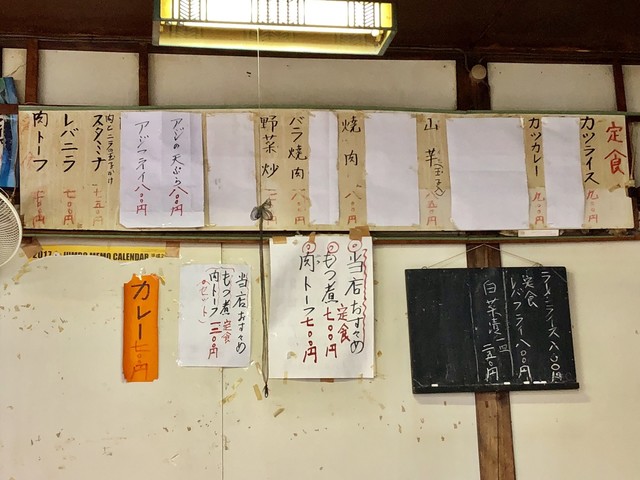 定食
カツライス 九〇〇円
カツカレー 九〇〇円
山芋(玉子) 八五〇円
焼肉 八〇〇円
バラ焼肉 八〇〇円
野菜炒
アジの天ぷら 八〇〇円
アジフライ 八〇〇円
スタミナ
レバニラ 七〇〇円
肉トーフ 七〇〇円
2017 JUMBO MEMO CALENDAR
カレー 七〇〇円
当店おすすめ
もつ煮定食
肉トーフ
のセット
当店おすすめ
もつ煮定食 七〇〇円
肉トーフ 七〇〇円
定食
レバフライ 八〇〇円
白菜漬一皿 二五〇円